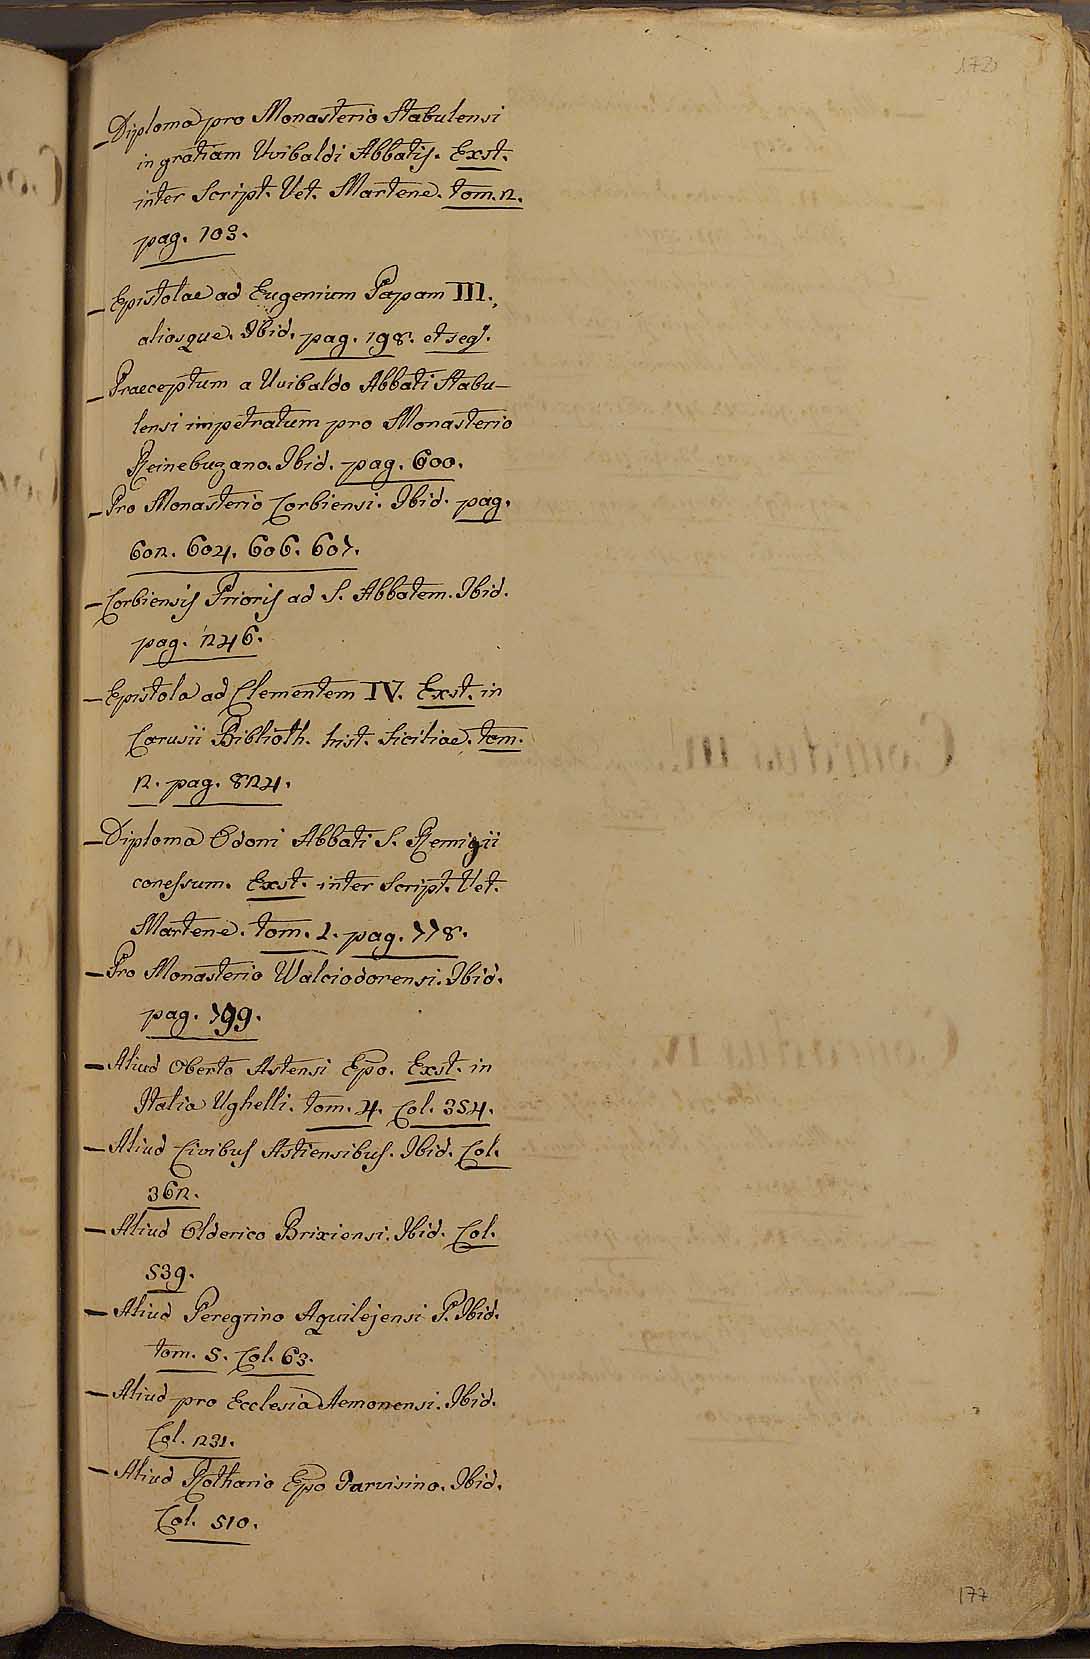 172
– Diploma pro Monasterio Stabulensi
in gratiam Uvibaldi Abbatis. Exst.
inter Script. Vet. Martene. tom. 2.
pag. 103.
– Epistolae ad Eugenium Papam III.,
aliosque. Ibid. pag. 198. et seq.
– Praeceptum a Uvibaldo Abbati Stabu-
lensi impetratum pro Monasterio
Reinebugano. Ibid. pag. 600.
– Pro Monasterio Corbiensi. Ibid. pag.
602. 604. 606. 607.
– Corbiensis Prioris ad S. Abbatem. Ibid.
pag. 1246.
– Epistola ad Clementem IV. Exst. in
Carusii Biblioth. hist. Siciliae. tom.
2. pag. 824.
– Diploma Odoni Abbati S. Remigii
conessum. Exst. inter Script. Vet.
Martene. tom. 1. pag. 778.
– Pro Monasterio Walciodorensi. Ibid.
pag. 799.
– Aliud Oberto Astensi Epo. Exst. in
Italia Ughelli. tom. 4. Col. 354.
– Aliud Civibus Astiensibus. Ibid. Col.
362.
– Aliud Olderico Brixiensi. Ibid. Col.
539.
– Aliud Peregrino Aquilejensi P. Ibid.
tom. 5. Col. 63.
– Aliud pro Ecclesia Aemonensi. Ibid.
Col. 231.
– Aliud Rothario Epo Tarvisino. Ibid.
Col. 510.
177